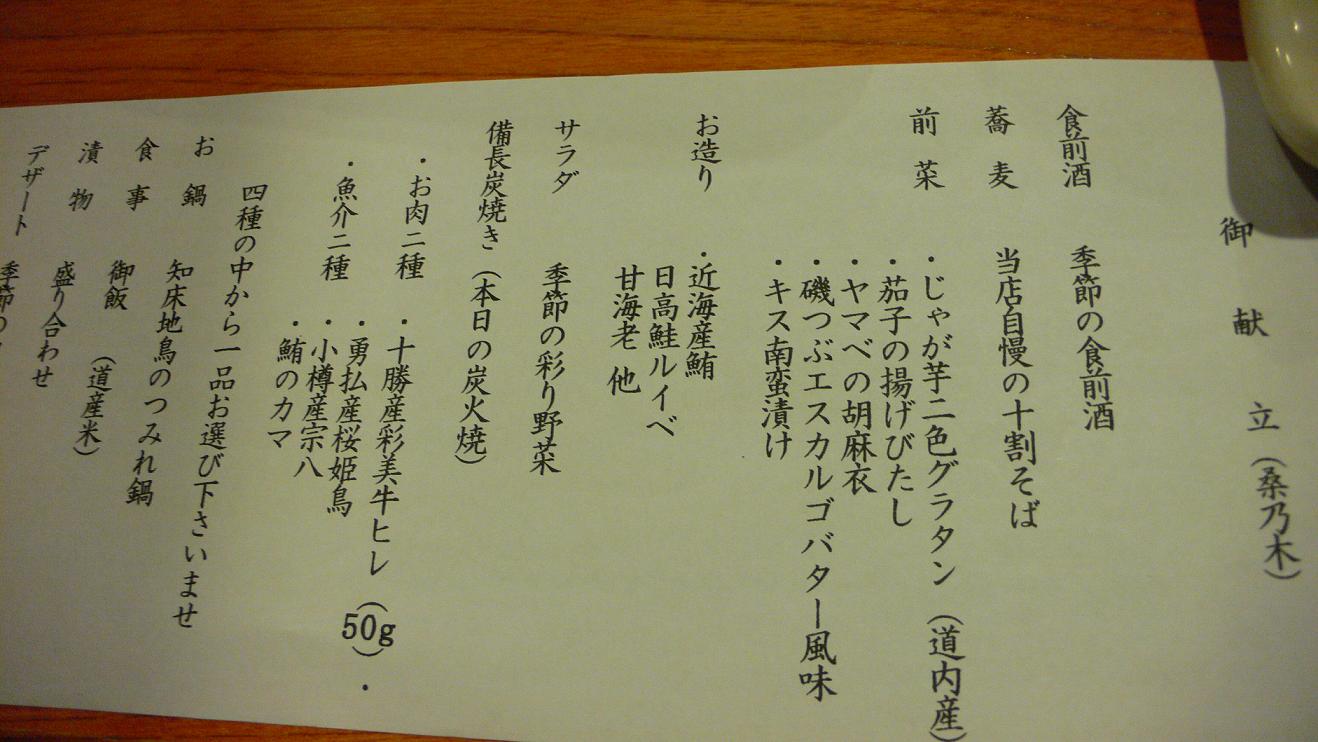 御献立（桑乃木）
食前酒　季節の食前酒
蕎麦　当店自慢の十割そば
前菜　・じゃが芋二色グラタン（道内産）
・茄子の揚げびたし
・ヤマベの胡麻衣
・磯つぶエスカルゴバター風味
・キス南蛮漬け
お造り　・近海産鮪
日高鮭ルイベ
甘海老　他
サラダ　季節の彩り野菜
備長炭焼き（本日の炭火焼）
・お肉二種　・十勝産彩美牛ヒレ（50g）・
・勇払産桜姫鳥
・魚介二種　・小樽産宗八
・鮪のカマ
四種の中から一品お選び下さいませ
お鍋　知床地鳥のつみれ鍋
食事　御飯（道産米）
漬物　盛り合わせ
デザート　季節の